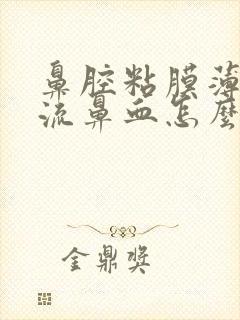 鼻腔粘膜薄
流鼻血怎麼
金鼎獎